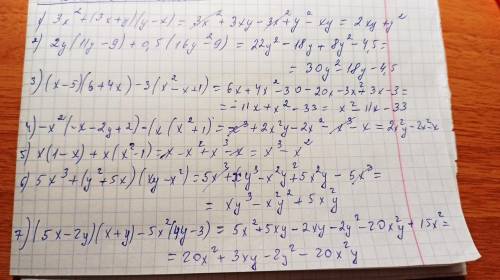 1) 3x² + (3x+y)(y-x) = 3x² + 3xy - 3x² + y² - xy = 2xy + y²
2) 2y(11y-9) + 0,5(16y²-9) = 22y² - 18y + 8y² - 4,5 =
= 30y² - 18y - 4,5
3) (x-5)(6+4x) - 3(x²-x+1) = 6x + 4x² - 30 - 20x - 3x² + 3x - 3 =
= -11x + x² - 33 = x² - 11x - 33
4) -x²(-x-2y+2) - (x(x²+1) = x³ + 2x²y - 2x² - x³ - x = 2x²y - 2x² - x
5) x(1-x) + x(x²-1) = x - x² + x³ - x = x³ - x²
6) 5x³ + (y²+5x)(xy-x²) = 5x³ + xy³ - x²y² + 5x²y - 5x³ =
= xy³ - x²y² + 5x²y
7) (5x-2y)(x+y) - 5x²(4y-3) = 5x² + 5xy - 2xy - 2y² - 20x²y + 15x² =
= 20x² + 3xy - 2y² - 20x²y